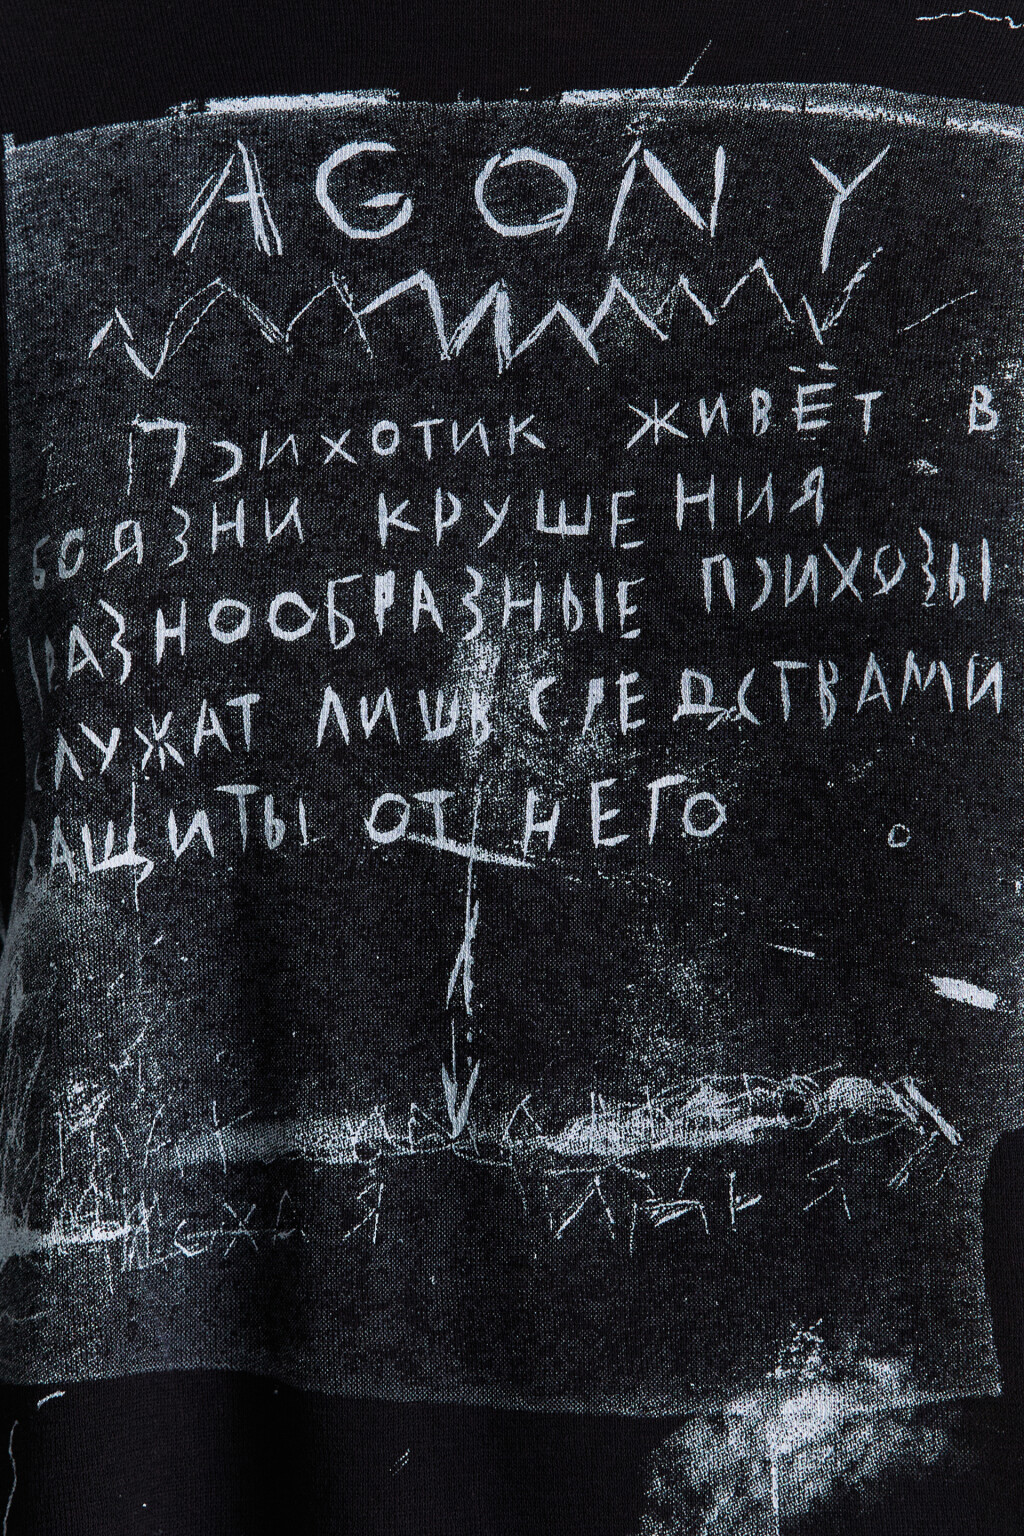 AGONY
Психотик живёт в
боязни крушения
разнообразные психозы
служат лишь средствами
защиты от него